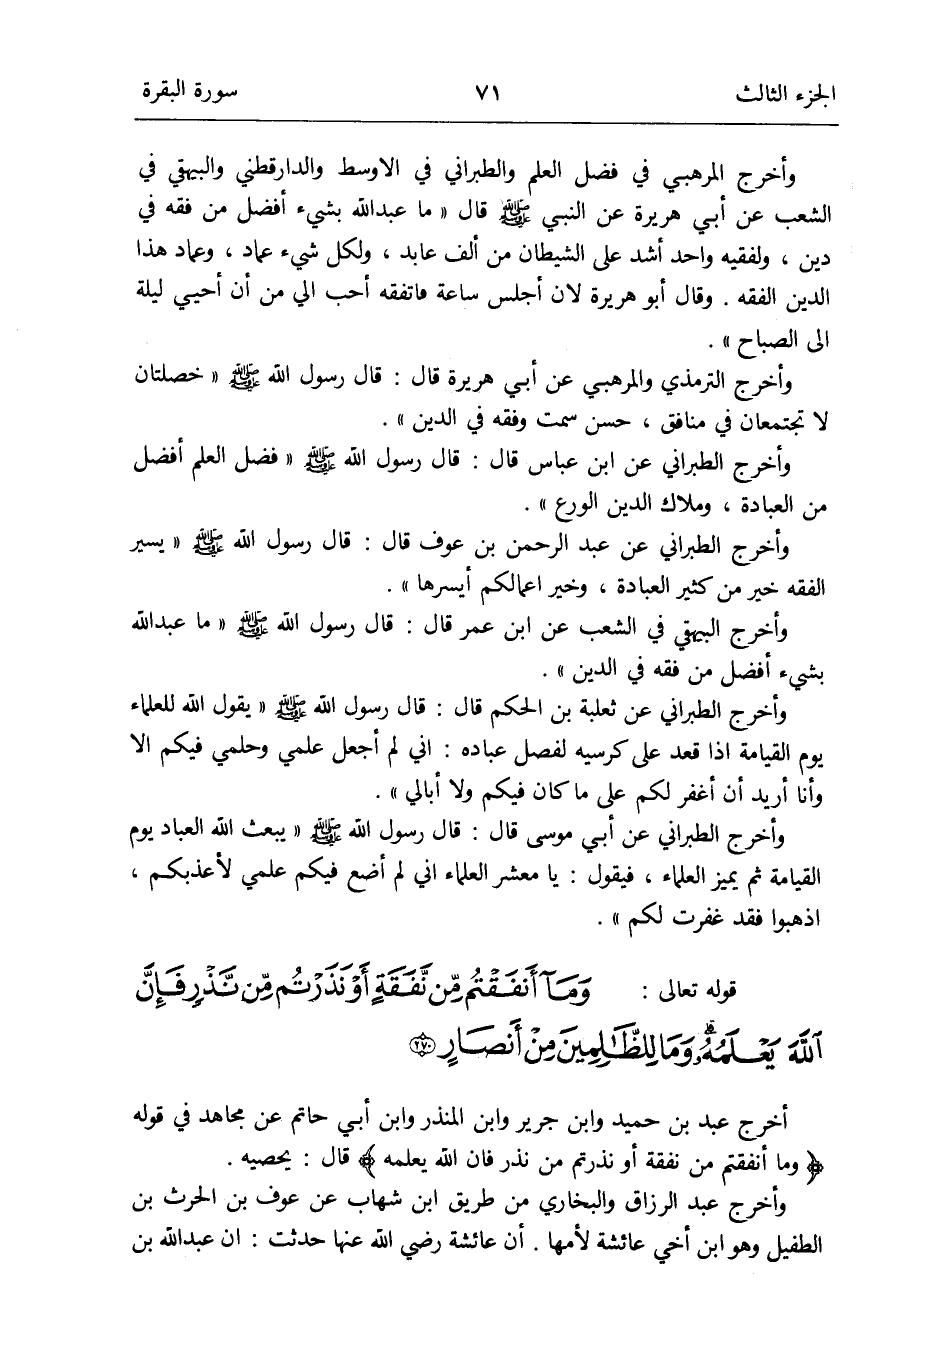 الجزء الثالث ٧١ سورة البقرة
وأخرج المرهبي في فضل العلم والطبراني في الاوسط والدارقطني والبيهقي في
الشعب عن أبي هريرة عن النبي ﷺ قال « ما عبدالله بشيء أفضل من فقه في
دين ، ولفقيه واحد أشد على الشيطان من ألف عابد ، ولكل شيء عماد ، وعماد هذا
الدين الفقه . وقال أبو هريرة لان أجلس ساعة فاتفقه أحب الي من أن أحيي ليلة
الى الصباح » .
وأخرج الترمذي والمرهبي عن أبي هريرة قال : قال رسول الله ﷺ « خصلتان
لا تجتمعان في منافق ، حسن سمت وفقه في الدين » .
وأخرج الطبراني عن ابن عباس قال : قال رسول الله ﷺ « فضل العلم أفضل
من العبادة ، وملاك الدين الورع » .
وأخرج الطبراني عن عبد الرحمن بن عوف قال : قال رسول الله ﷺ « يسير
الفقه خير من كثير العبادة ، وخير اعمالكم أيسرها » .
وأخرج البيهقي في الشعب عن ابن عمر قال : قال رسول الله ﷺ « ما عبدالله
بشيء أفضل من فقه في الدين » .
وأخرج الطبراني عن ثعلبة بن الحكم قال : قال رسول الله ﷺ « يقول الله للعلماء
يوم القيامة اذا قعد على كرسيه لفصل عباده : اني لم أجعل علمي وحلمي فيكم الا
وأنا أريد أن أغفر لكم على ما كان فيكم ولا أبالي » .
وأخرج الطبراني عن أبي موسى قال : قال رسول الله ﷺ « يبعث الله العباد يوم
القيامة ثم يميز العلماء ، فيقول : يا معشر العلماء اني لم أضع فيكم علمي لأعذبكم ،
اذهبوا فقد غفرت لكم » .
قوله تعالى : وَمَآ أَنفَقْتُم مِّن نَّفَقَةٍ أَوْ نَذَرْتُم مِّن نَّذْرٍ فَإِنَّ
ٱللَّهَ يَعْلَمُهُۥ ۗ وَمَا لِلظَّٰلِمِينَ مِنْ أَنصَارٍ ٢٧٠
أخرج عبد بن حميد وابن جرير وابن المنذر وابن أبي حاتم عن مجاهد في قوله
﴿ وما أنفقتم من نفقة أو نذرتم من نذر فان الله يعلمه ﴾ قال : يحصيه .
وأخرج عبد الرزاق والبخاري من طريق ابن شهاب عن عوف بن الحرث بن
الطفيل وهو ابن أخي عائشة لأمها . أن عائشة رضي الله عنها حدثت : ان عبدالله بن